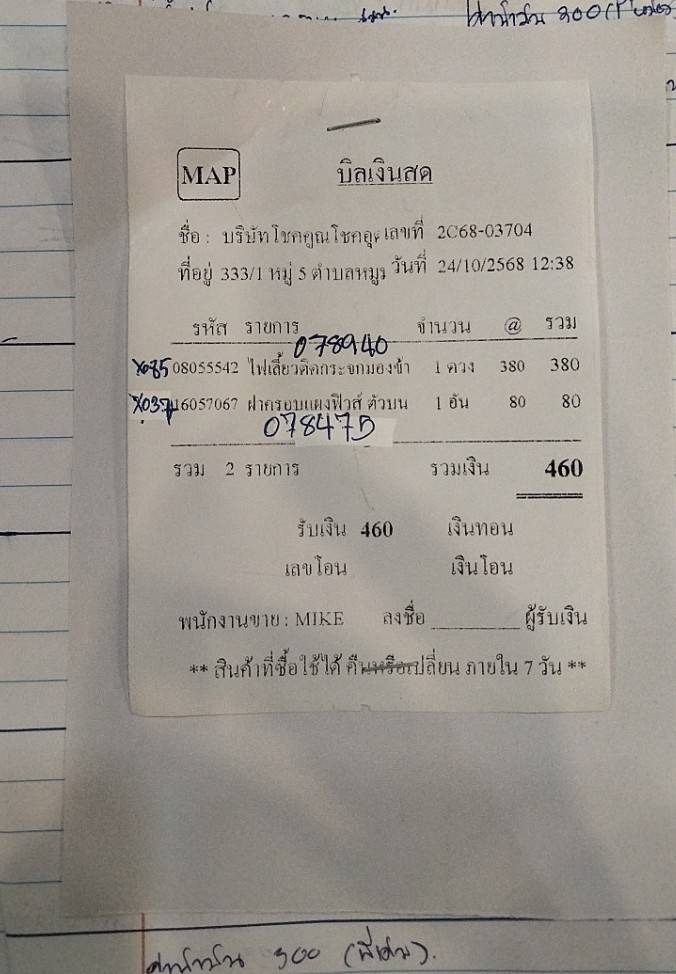 300
MAP
บิลเงินสด
ชื่อ : บริษัทโชคคูณโชคอุ เลขที่ 2C68-03704
ที่อยู่ 333/1 หมู่ 5 ตำบลหมู วันที่ 24/10/2568 12:38
รหัส รายการ จำนวน @ รวม
078940
08055542 ไฟเลี้ยวติดกระจกมองข้า 1 ดวง 380 380
16057067 ฝาครอบแผงฟิวส์ ตัวบน 1 อัน 80 80
078475
รวม 2 รายการ รวมเงิน 460
รับเงิน 460 เงินทอน
เลขโอน เงินโอน
พนักงานขาย : MIKE ลงชื่อ ผู้รับเงิน
** สินค้าที่ซื้อใช้ได้ คืนหรือเปลี่ยน ภายใน 7 วัน **
300